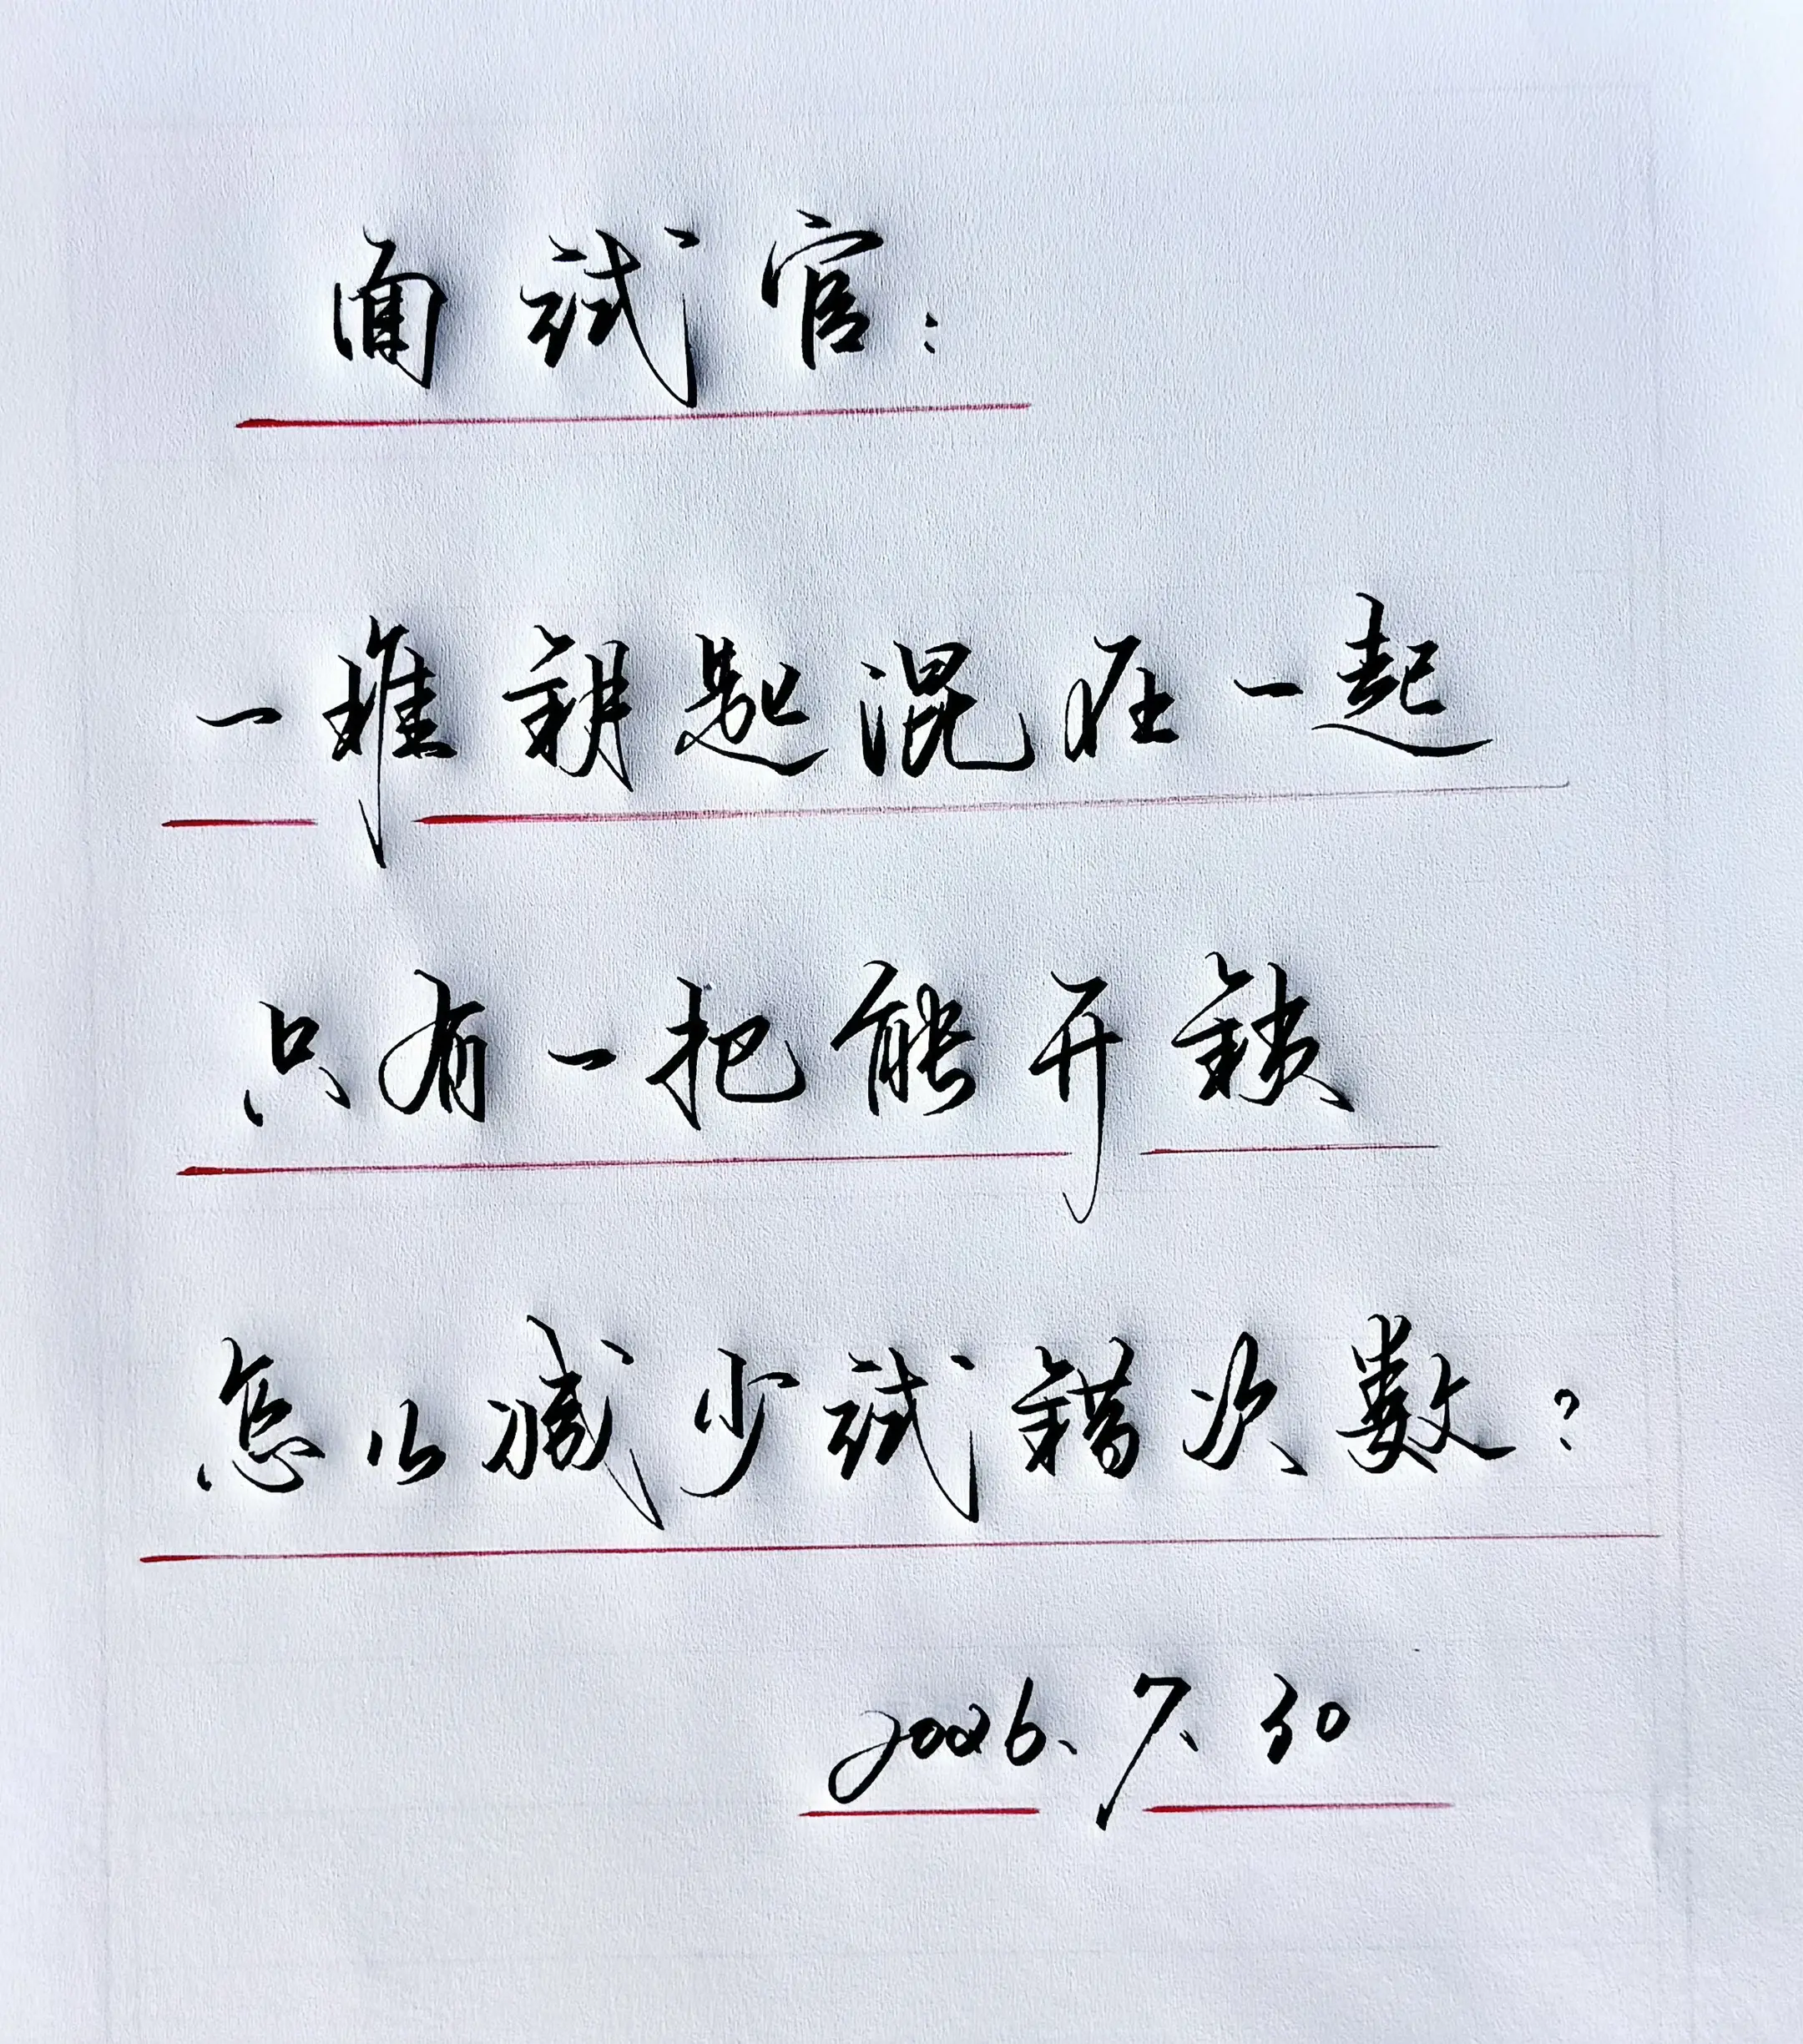 面试官：
一堆钥匙混在一起
只有一把能开锁
怎么减少试错次数？
2026.7.30